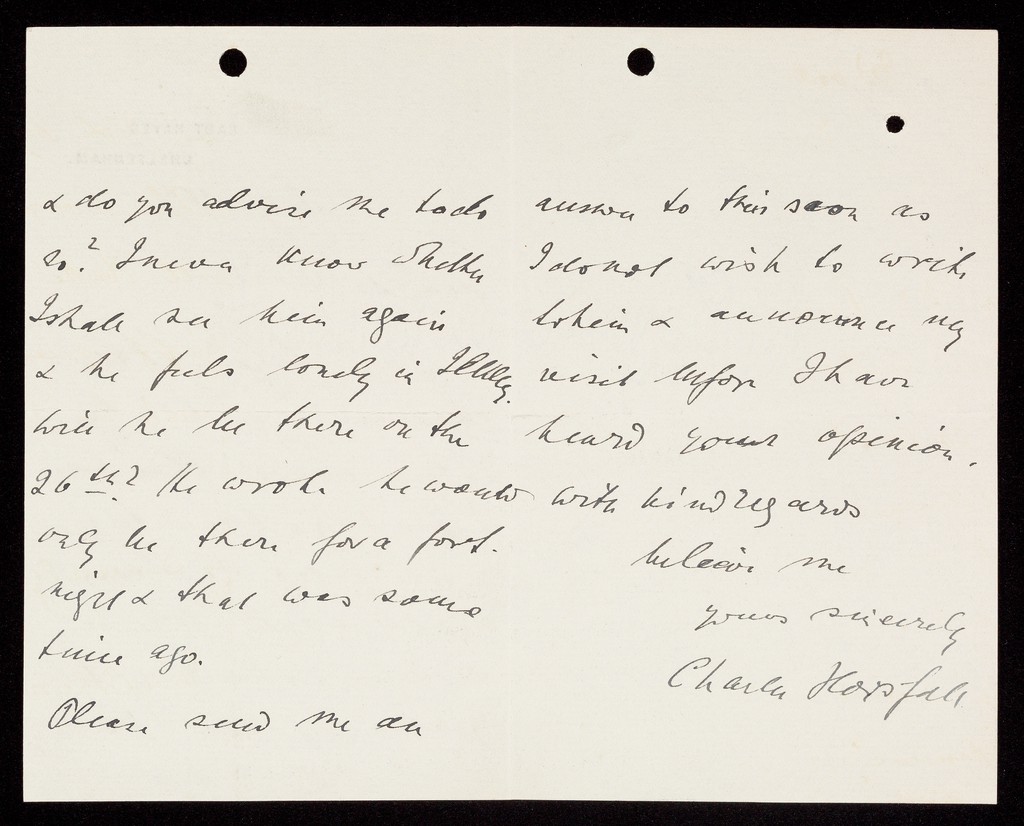 & do you advise me to do
so? I never know whether
I shall see him again
& he feels lonely in Ilkley.
Will he be there on the
26th? He wrote he would
only be there for a fort-
night & that was some
time ago.
Please send me an
answer to this soon as
I do not wish to write
to him & announce my
visit before I have
heard your opinion.
With kind regards
believe me
yours sincerely
Charles Horsfall